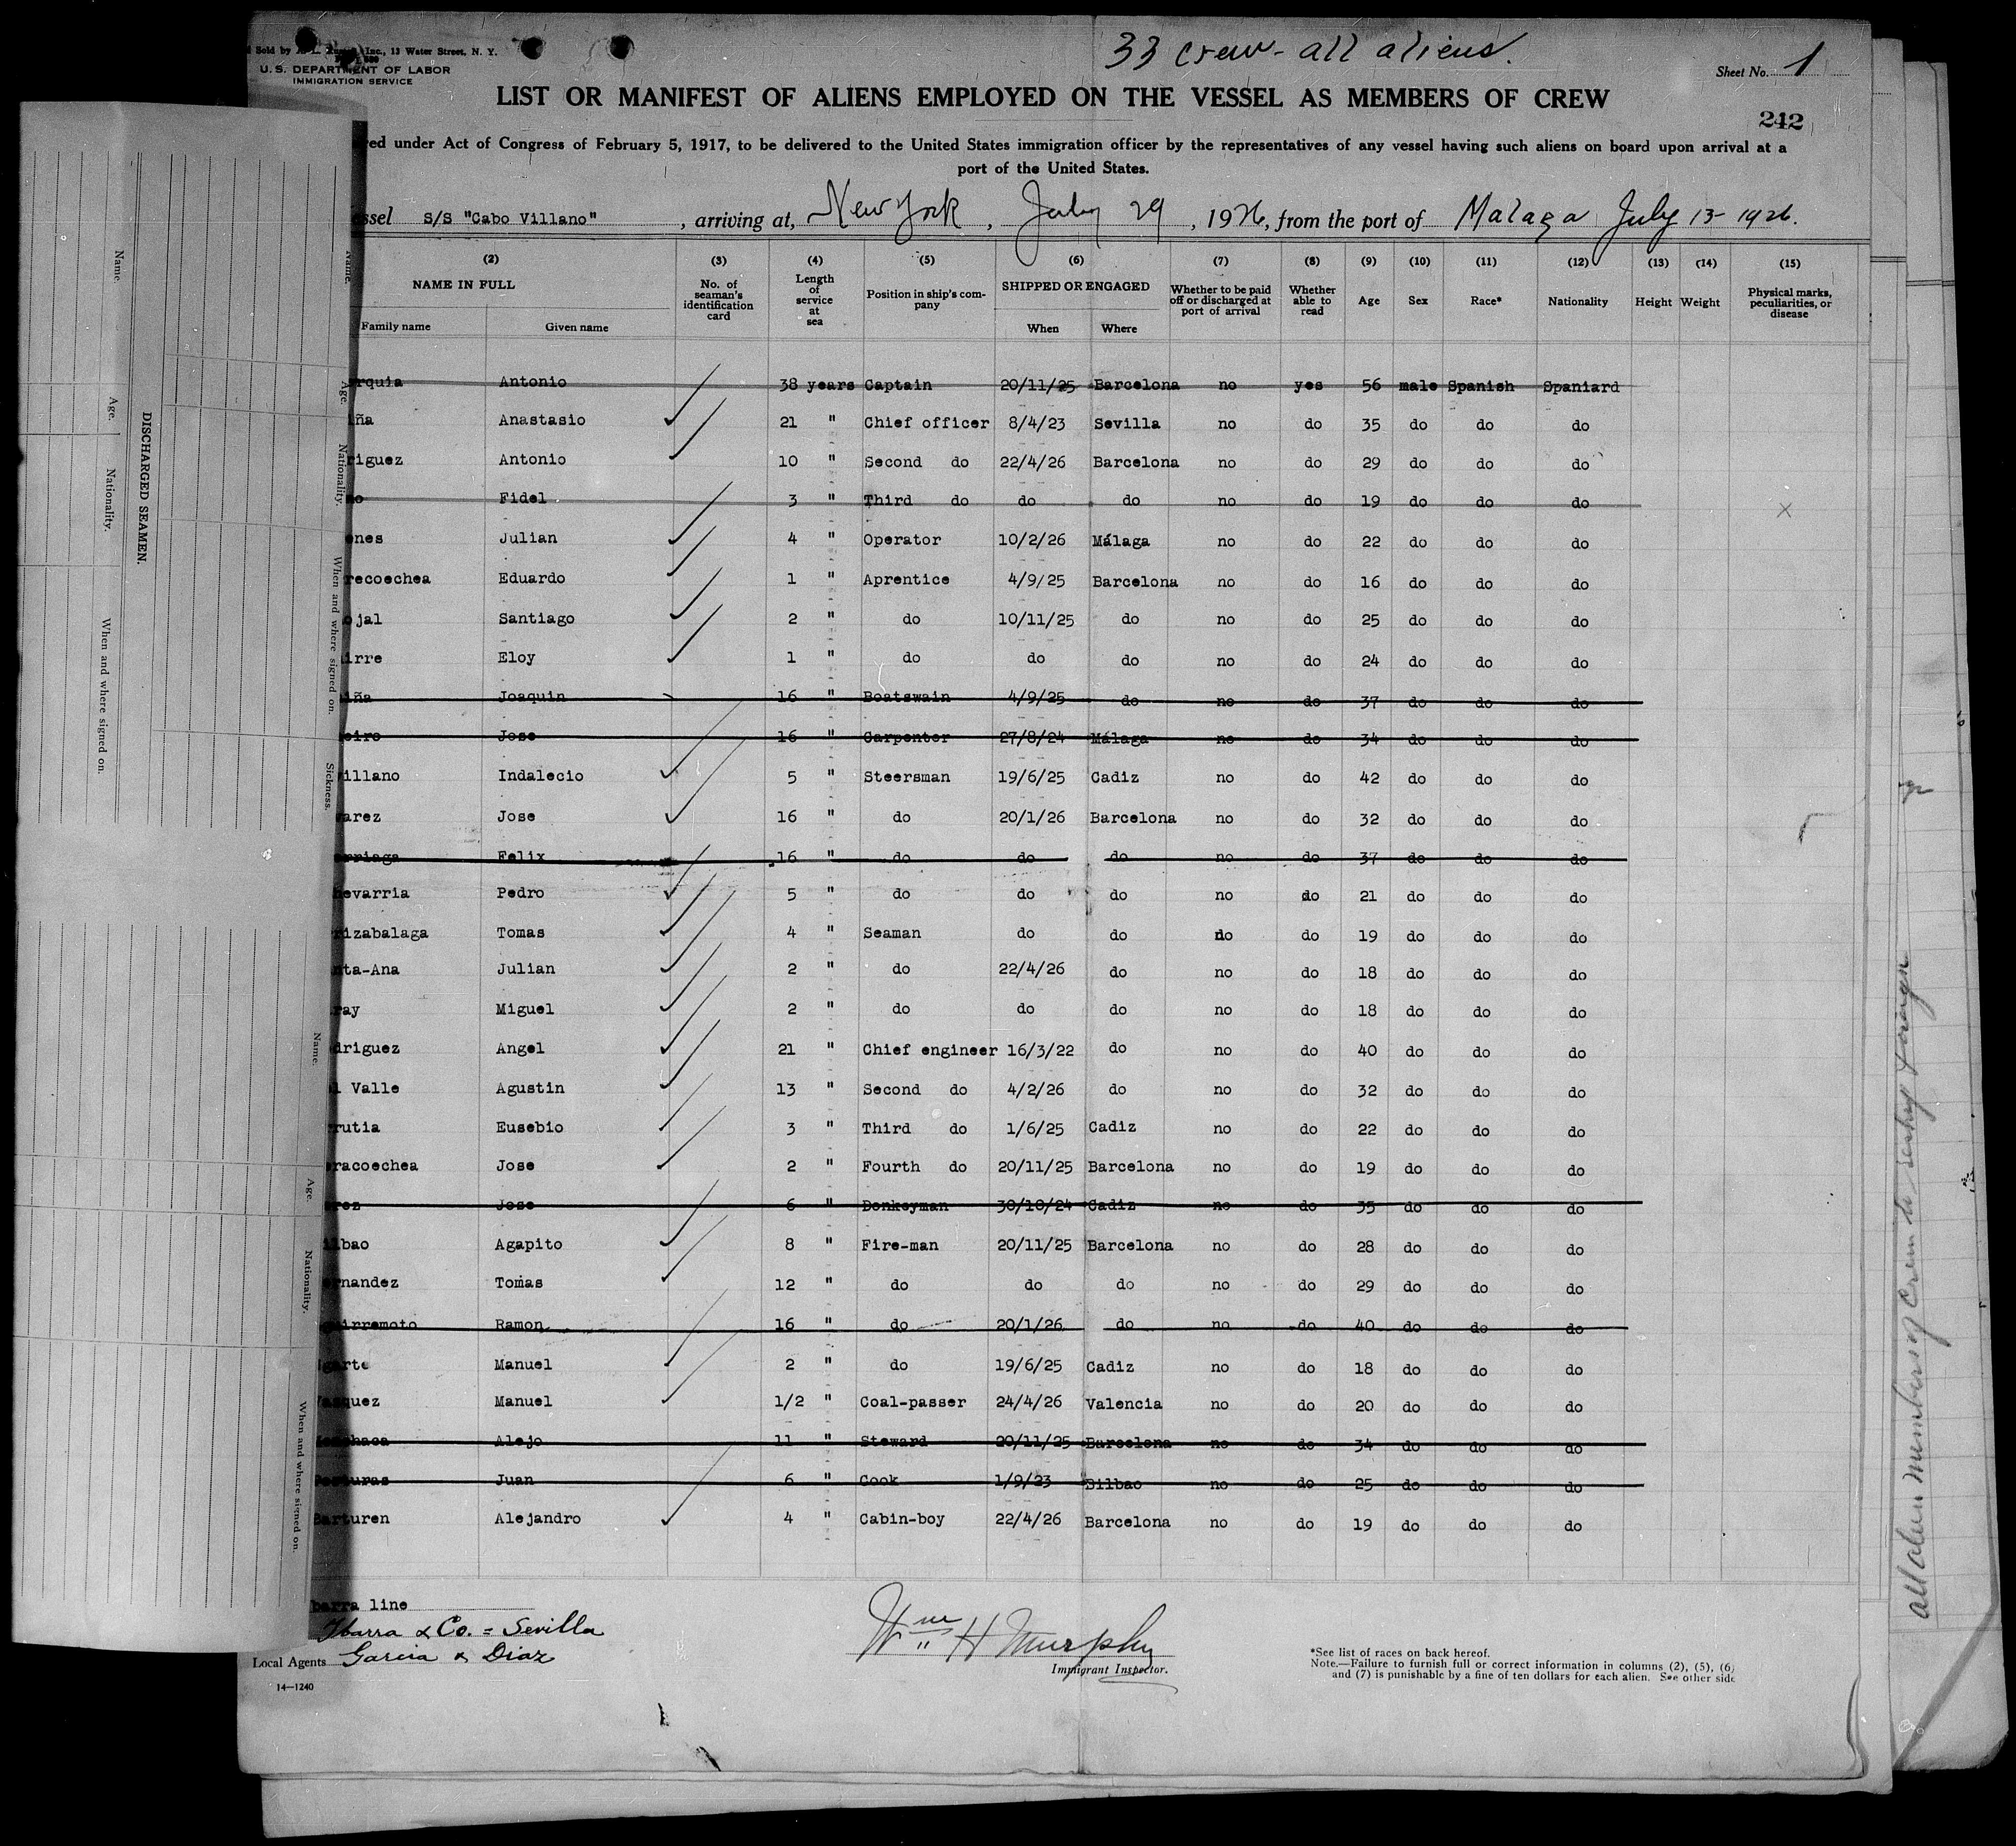 33 crew - all aliens.
Sold by Inc., 13 Water Street, N. Y.
U. S. DEPARTMENT OF LABOR
IMMIGRATION SERVICE
Sheet No. 1
LIST OR MANIFEST OF ALIENS EMPLOYED ON THE VESSEL AS MEMBERS OF CREW
242
red under Act of Congress of February 5, 1917, to be delivered to the United States immigration officer by the representatives of any vessel having such aliens on board upon arrival at a
port of the United States.
essel S/S "Cabo Villano", arriving at, New York, July 29, 1926, from the port of Malaga July 13- 1926.
(2) (3) (4) (5) (6) (7) (8) (9) (10) (11) (12) (13) (14) (15)
NAME IN FULL No. of seaman's identification card Length of service at sea Position in ship's company SHIPPED OR ENGAGED Whether to be paid off or discharged at port of arrival Whether able to read Age Sex Race* Nationality Height Weight Physical marks, peculiarities, or disease
Family name Given name When Where
rquia Antonio 38 years Captain 20/11/25 Barcelona no yes 56 male Spanish Spaniard
iña Anastasio 21 " Chief officer 8/4/23 Sevilla no do 35 do do do
riguez Antonio 10 " Second do 22/4/26 Barcelona no do 29 do do do
o Fidel 3 " Third do do do no do 19 do do do
enes Julian 4 " Operator 10/2/26 Málaga no do 22 do do do
recoechea Eduardo 1 " Aprentice 4/9/25 Barcelona no do 16 do do do
ojal Santiago 2 " do 10/11/25 do no do 25 do do do
irre Eloy 1 " do do do no do 24 do do do
iña Joaquin 16 " Boatswain 4/9/25 do no do 37 do do do
eiro Jose 16 " Carpenter 27/8/24 Málaga no do 34 do do do
illano Indalecio 5 " Steersman 19/6/25 Cadiz no do 42 do do do
arez Jose 16 " do 20/1/26 Barcelona no do 32 do do do
rriaga Felix 16 " do do do no do 37 do do do
hevarria Pedro 5 " do do do no do 21 do do do
rizabalaga Tomas 4 " Seaman do do no do 19 do do do
nta-Ana Julian 2 " do 22/4/26 do no do 18 do do do
ray Miguel 2 " do do do no do 18 do do do
driguez Angel 21 " Chief engineer 16/3/22 do no do 40 do do do
l Valle Agustin 13 " Second do 4/2/26 do no do 32 do do do
rutia Eusebio 3 " Third do 1/6/25 Cadiz no do 22 do do do
racoechea Jose 2 " Fourth do 20/11/25 Barcelona no do 19 do do do
rez Jose 6 " Donkeyman 30/10/24 Cadiz no do 35 do do do
ilbao Agapito 8 " Fire-man 20/11/25 Barcelona no do 28 do do do
ernandez Tomas 12 " do do do no do 29 do do do
irremoto Ramon 16 " do 20/1/26 do no do 40 do do do
garte Manuel 2 " do 19/6/25 Cadiz no do 18 do do do
Vasquez Manuel 1/2 " Coal-passer 24/4/26 Valencia no do 20 do do do
haca Alejo 11 " Steward 20/11/25 Barcelona no do 34 do do do
turas Juan 6 " Cook 1/9/23 Bilbao no do 25 do do do
Barturen Alejandro 4 " Cabin-boy 22/4/26 Barcelona no do 19 do do do
barra line
Ibarra & Co. = Sevilla
Local Agents Garcia & Diaz
14-1240
Wm H Murphy
Immigrant Inspector.
*See list of races on back hereof.
Note.—Failure to furnish full or correct information in columns (2), (5), (6)
and (7) is punishable by a fine of ten dollars for each alien. See other side
DISCHARGED SEAMEN.
Name.
Age.
Nationality.
When and where signed on.
Name.
Age.
Nationality.
When and where signed on.
Sickness.
Name.
Age.
Nationality.
When and where signed on.
all alien members of crew